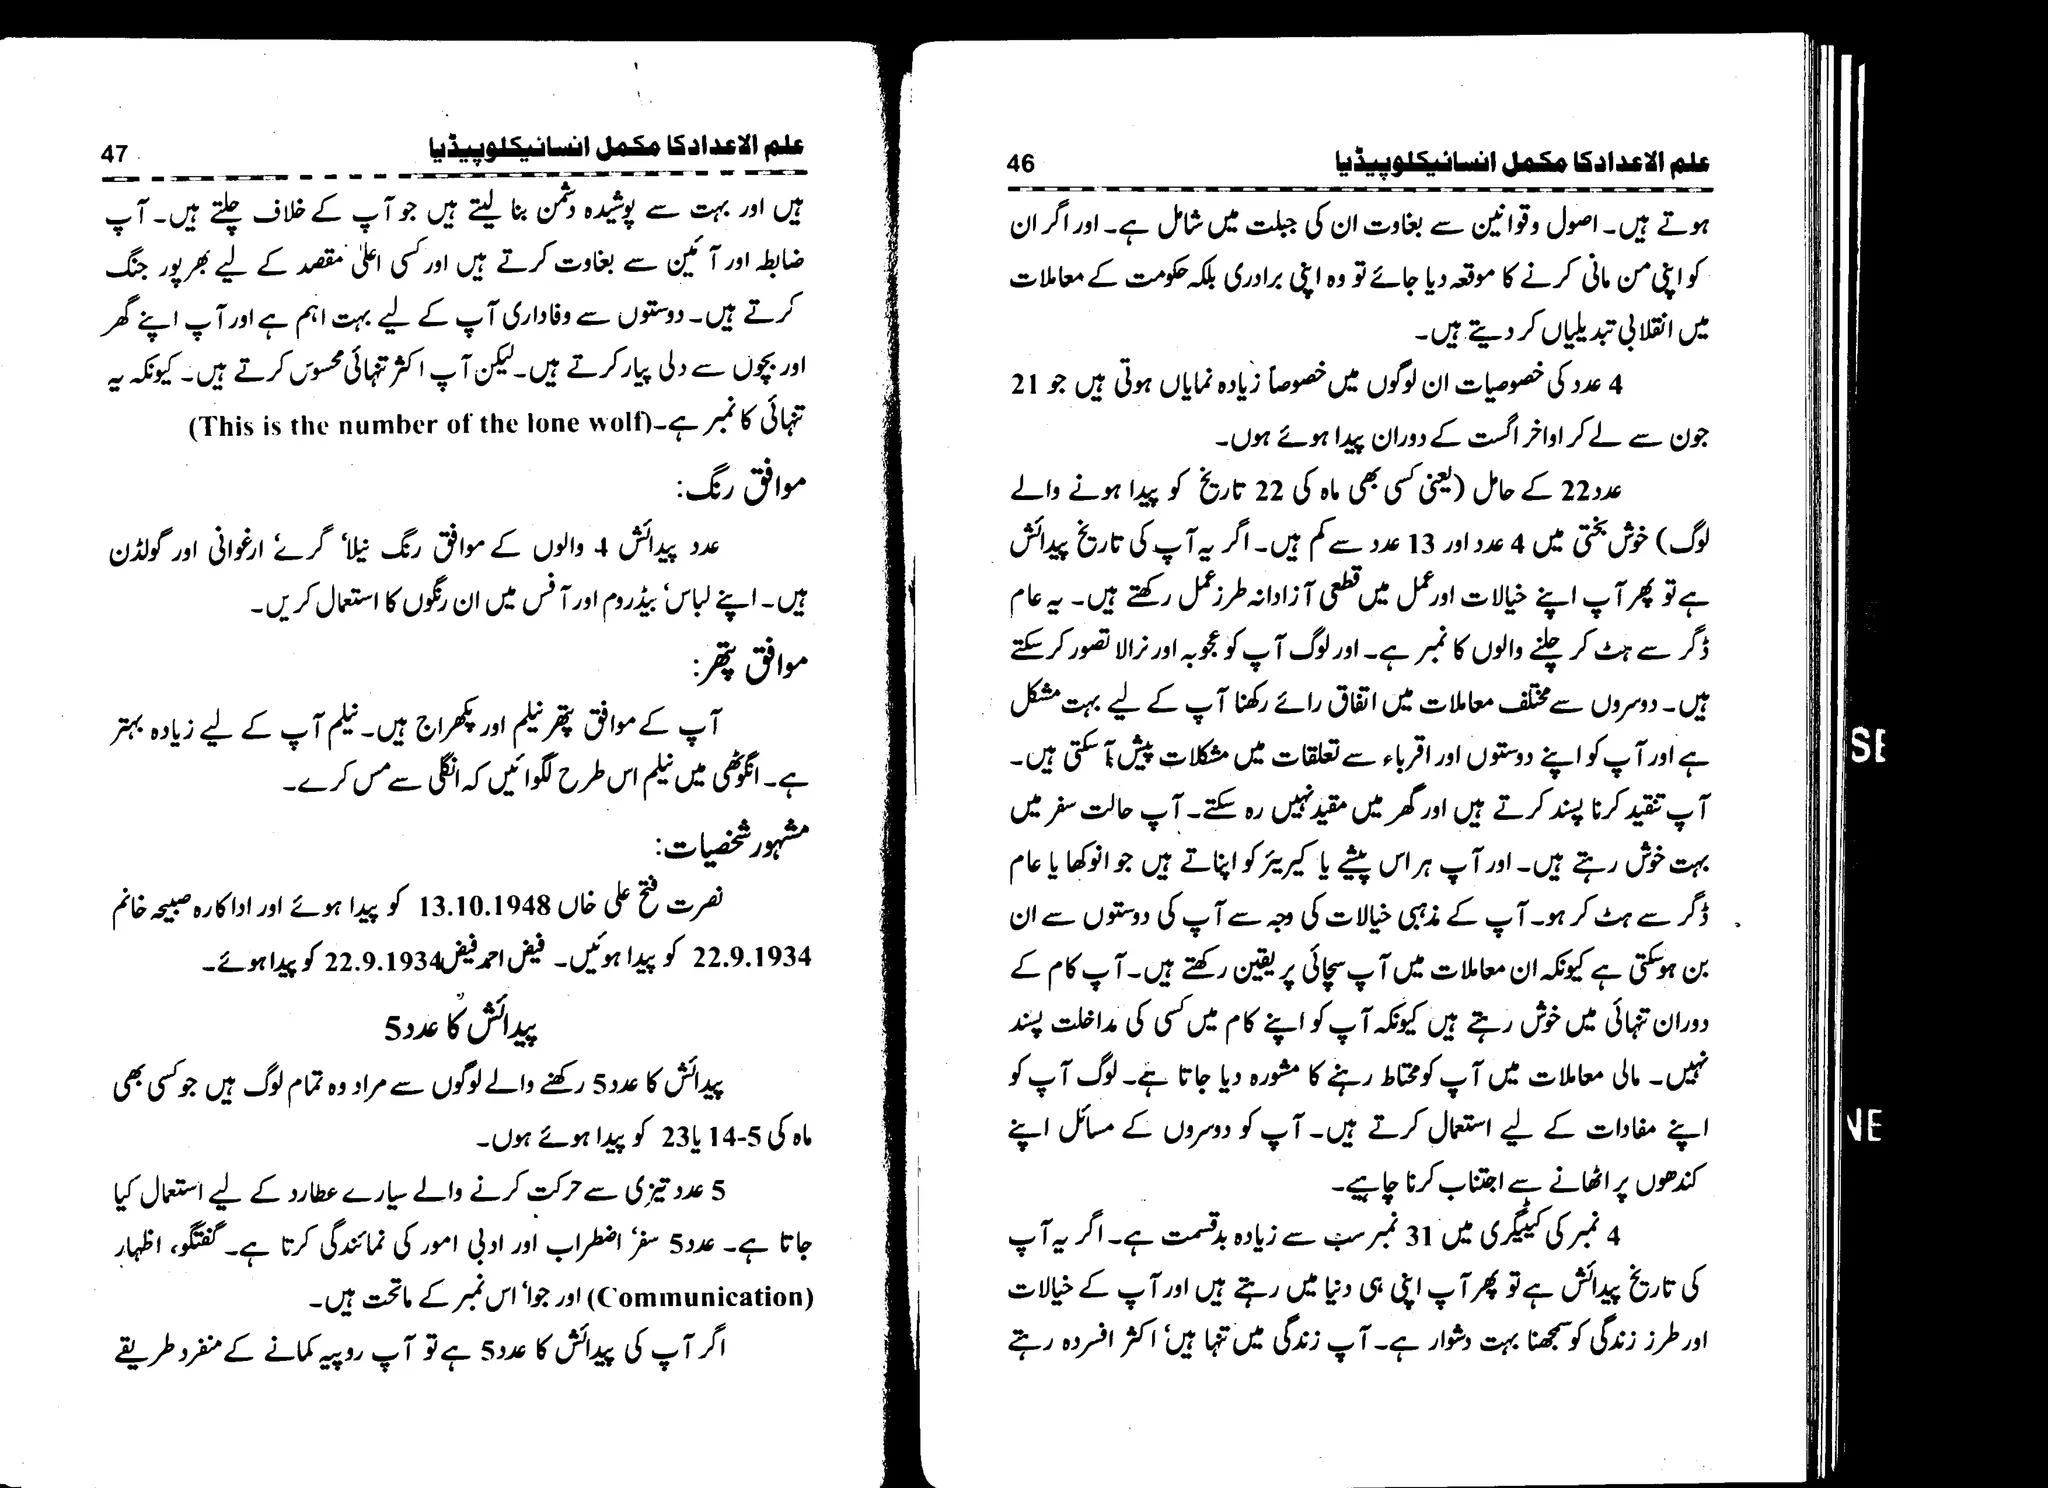 علم الاعداد کا مکمل انسائیکلوپیڈیا 46
ہوتے ہیں۔ اصول و قوانین سے بغاوت ان کی جبلت میں شامل ہے۔ اور اگر ان
کو اپنی من مانی کرنے کا موقعہ دیا جائے تو وہ اپنی برادری بلکہ حکومت کے معاملات
میں انقلابی تبدیلیاں کر دیتے ہیں۔
4 عدد کی خصوصیات ان لوگوں میں خصوصاً زیادہ نمایاں ہوتی ہیں جو 21
جون سے لے کر اواخر اگست کے دوران پیدا ہوئے ہوں۔
عدد 22 کے حامل (یعنی کسی بھی ماہ کی 22 تاریخ کو پیدا ہونے والے
لوگ) خوش بختی میں 4 عدد اور 13 عدد سے کم ہیں۔ اگر یہ آپ کی تاریخ پیدائش
ہے تو پھر آپ اپنے خیالات اور عمل میں قطعی آزادانہ طرز عمل رکھتے ہیں۔ یہ عام
ڈگر سے ہٹ کر چلنے والوں کا نمبر ہے۔ اور لوگ آپ کو عجوبہ اور نرالا تصور کر سکتے
ہیں۔ دوسروں سے مختلف معاملات میں اتفاق رائے رکھنا آپ کے لیے بہت مشکل
ہے اور آپ کو اپنے دوستوں اور اقرباء سے تعلقات میں مشکلات پیش آ سکتی ہیں۔
آپ تنقید کرنا پسند کرتے ہیں اور گھر میں مقید نہیں رہ سکتے۔ آپ حالت سفر میں
بہت خوش رہتے ہیں۔ اور آپ ہر اس پیشے یا کیریئر کو اپناتے ہیں جو انوکھا یا عام
ڈگر سے ہٹ کر ہو۔ آپ کے مذہبی خیالات کی وجہ سے آپ کی دوستوں سے ان
بن ہو سکتی ہے کیونکہ ان معاملات میں آپ سچائی پر یقین رکھتے ہیں۔ آپ کام کے
دوران تنہائی میں خوش رہتے ہیں کیونکہ آپ کو اپنے کام میں کسی کی مداخلت پسند
نہیں۔ مالی معاملات میں آپ کو محتاط رہنے کا مشورہ دیا جاتا ہے۔ لوگ آپ کو
اپنے مفادات کے لیے استعمال کرتے ہیں۔ آپ کو دوسروں کے مسائل اپنے
کندھوں پر اٹھانے سے اجتناب کرنا چاہیے۔
4 نمبر کی کیٹیگری میں 31 نمبر سب سے زیادہ بدقسمت ہے۔ اگر یہ آپ
کی تاریخ پیدائش ہے تو پھر آپ اپنی ہی دنیا میں رہتے ہیں اور آپ کے خیالات
اور طرز زندگی کو سمجھنا بہت دشوار ہے۔ آپ زندگی میں تنہا ہیں، اکثر افسردہ رہتے
علم الاعداد کا مکمل انسائیکلوپیڈیا 47
ہیں اور بہت سے پوشیدہ دشمن بنا لیتے ہیں جو آپ کے خلاف چلتے ہیں۔ آپ
ضابطہ اور آئین سے بغاوت کرتے ہیں اور کسی اعلیٰ مقصد کے لیے بھرپور جنگ
کرتے ہیں۔ دوستوں سے وفاداری آپ کے لیے بہت اہم ہے اور آپ اپنے گھر
اور بچوں سے دلی پیار کرتے ہیں۔ لیکن آپ اکثر تنہائی محسوس کرتے ہیں۔ کیونکہ یہ
تنہائی کا نمبر ہے۔ (This is the number of the lone wolf)
موافق رنگ:
عدد پیدائش 4 والوں کے موافق رنگ نیلا، گرے، ارغوانی اور گولڈن
ہیں۔ اپنے لباس، بیڈ روم اور آفس میں ان رنگوں کا استعمال کریں۔
موافق پتھر:
آپ کے موافق پتھر نیلم اور پکھراج ہیں۔ نیلم آپ کے لیے زیادہ بہتر
ہے۔ انگوٹھی میں نیلم اس طرح لگوائیں کہ انگلی سے مس کرے۔
مشہور شخصیات:
نصرت فتح علی خاں 13.10.1948 کو پیدا ہوئے اور اداکارہ صبیحہ خانم
22.9.1934 کو پیدا ہوئیں۔ فیض احمد فیض 22.9.1934 کو پیدا ہوئے۔
پیدائش کا عدد 5
پیدائش کا عدد 5 رکھنے والے لوگوں سے مراد وہ تمام لوگ ہیں جو کسی بھی
ماہ کی 5-14 یا 23 کو پیدا ہوئے ہوں۔
5 عدد تیزی سے حرکت کرنے والے سیارے عطارد کے لیے استعمال کیا
جاتا ہے۔ عدد 5 سفر، اضطراب اور ادبی امور کی نمائندگی کرتا ہے۔ گفتگو، اظہار
(Communication) اور جوا، اس نمبر کے ماتحت ہیں۔
اگر آپ کی پیدائش کا عدد 5 ہے تو آپ روپیہ کمانے کے منفرد طریقے